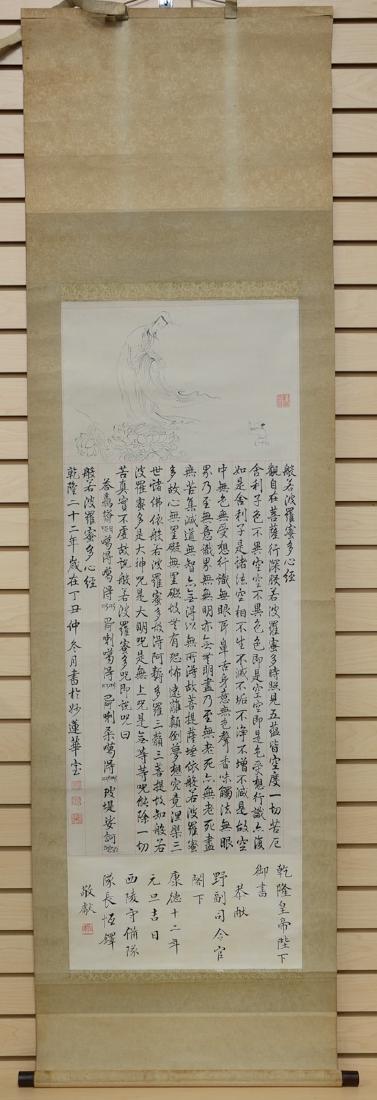 般若波羅蜜多心經
觀自在菩薩行深般若波羅蜜多時照見五蘊皆空度一切苦厄
舍利子色不異空空不異色色即是空空即是色受想行識亦復
如是舍利子是諸法空相不生不滅不垢不淨不增不減是故空
中無色無受想行識無眼耳鼻舌身意無色聲香味觸法無眼
界乃至無意識界無無明亦無無明盡乃至無老死亦無老死盡
無苦集滅道無智亦無得以無所得故菩提薩埵依般若波羅蜜
多故心無罣礙無罣礙故無有恐怖遠離顛倒夢想究竟涅槃三
世諸佛依般若波羅蜜多故得阿耨多羅三藐三菩提故知般若
波羅蜜多是大神咒是大明咒是無上咒是無等等咒能除一切
苦真實不虛故說般若波羅蜜多咒即說咒曰
般若波羅蜜多心經
乾隆二十二年歲在丁丑仲冬月書於妙蓮華室
乾隆皇帝陛下
御書
恭獻
野副司令官
閣下
康德十二年
元旦吉日
西陵守備隊
隊長恆鐸
敬獻